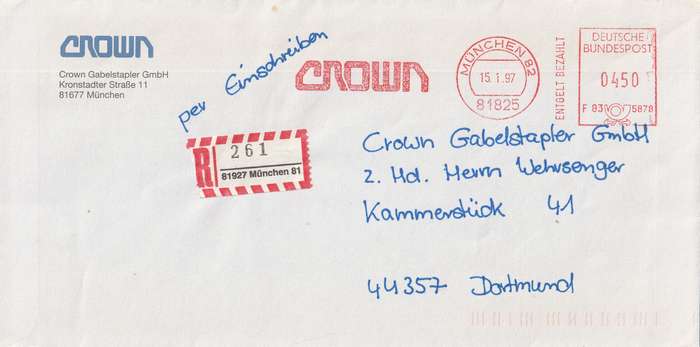 CROWN
Crown Gabelstapler GmbH
Kronstadter Straße 11
81677 München
per Einschreiben
CROWN
MÜNCHEN 82
15.1.97
81825
ENTGELT BEZAHLT
DEUTSCHE
BUNDESPOST
0450
F 83 5878
R 261
81927 München 81
Crown Gabelstapler GmbH
z. Hd. Herrn Wehrsenger
Kammerstück 41
44357 Dortmund